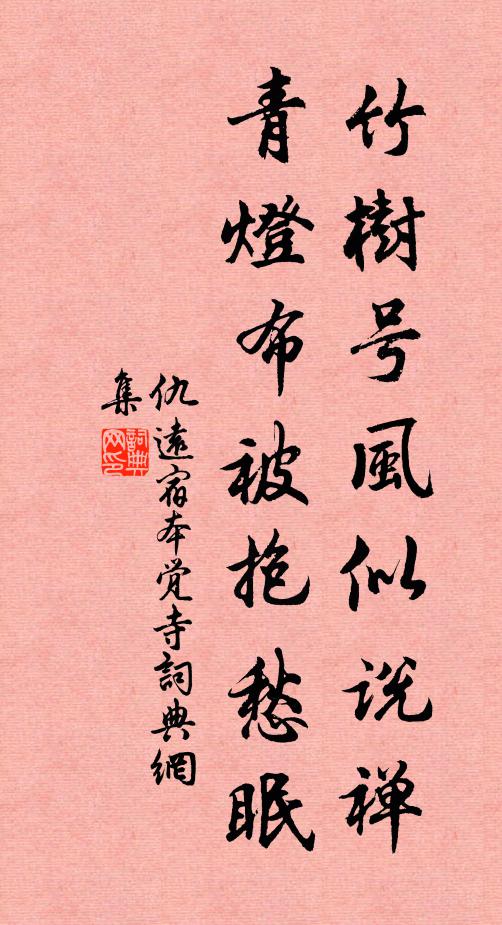 竹樹号風似说禅
青燈布被抱愁眠
仇遠宿本觉寺詞典網
集
詞典網印